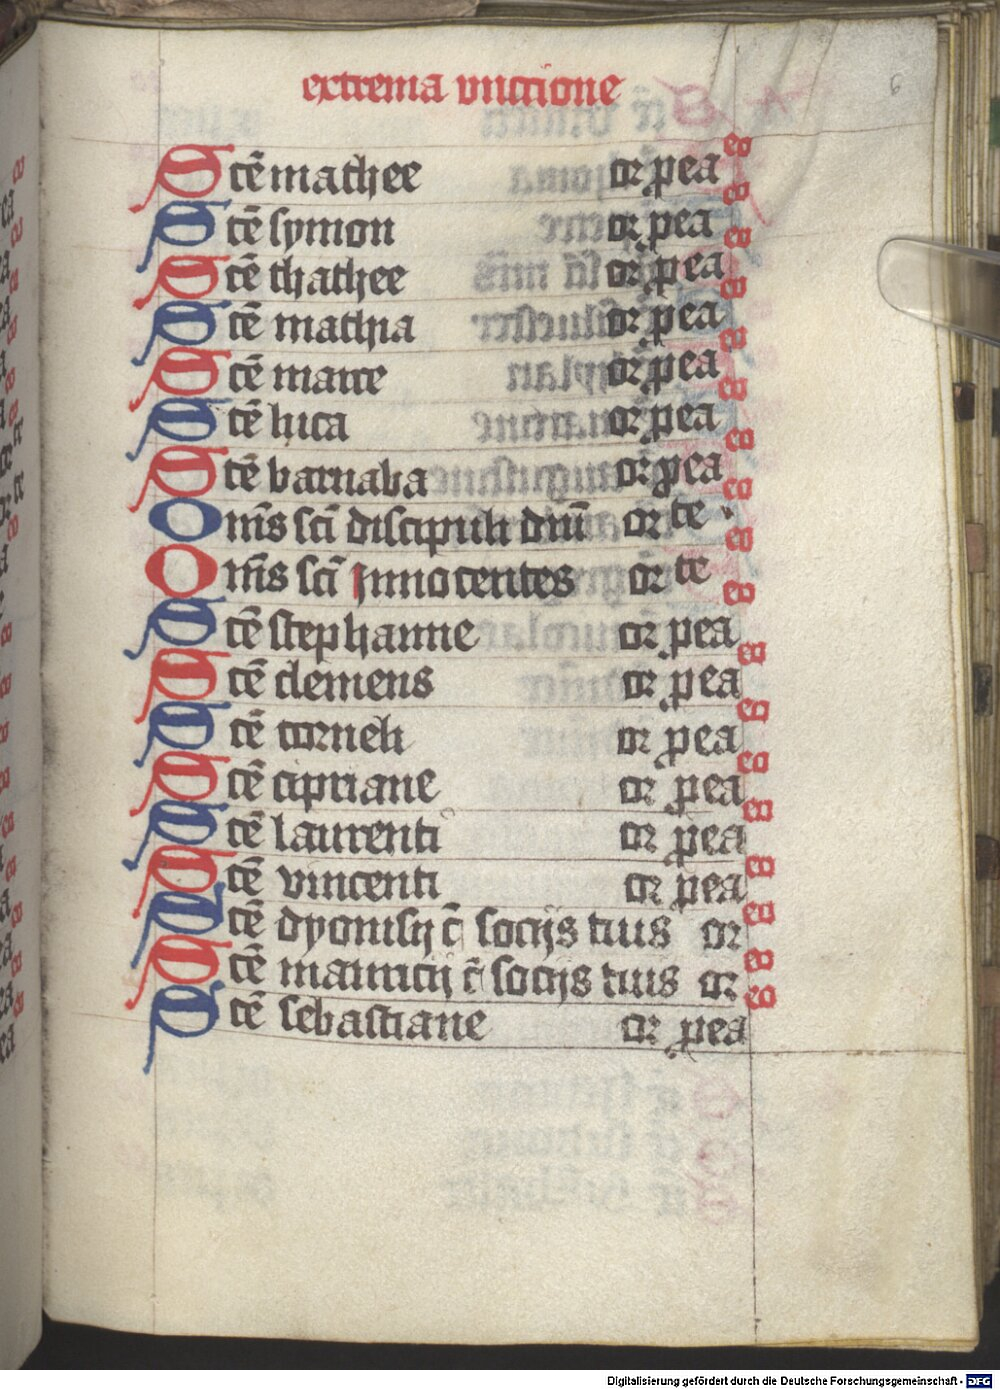 extrema unctione
6
Scē mathee or pea
Scē symon or pea
Scē thathee or pea
Scē mathia or pea
Scē marce or pea
Scē luca or pea
Scē barnaba or pea
Om̄s scī discipuli dn̄i or te
Om̄s scī Innocentes or te
Scē stephanne or pea
Scē clemens or pea
Scē corneli or pea
Scē cipriane or pea
Scē laurenti or pea
Scē vincenti or pea
Scē dyonisij c̄ socijs tuis or
Scē mauricij c̄ socijs tuis or
Scē sebastiane or pea
Digitalisierung gefördert durch die Deutsche Forschungsgemeinschaft - DFG